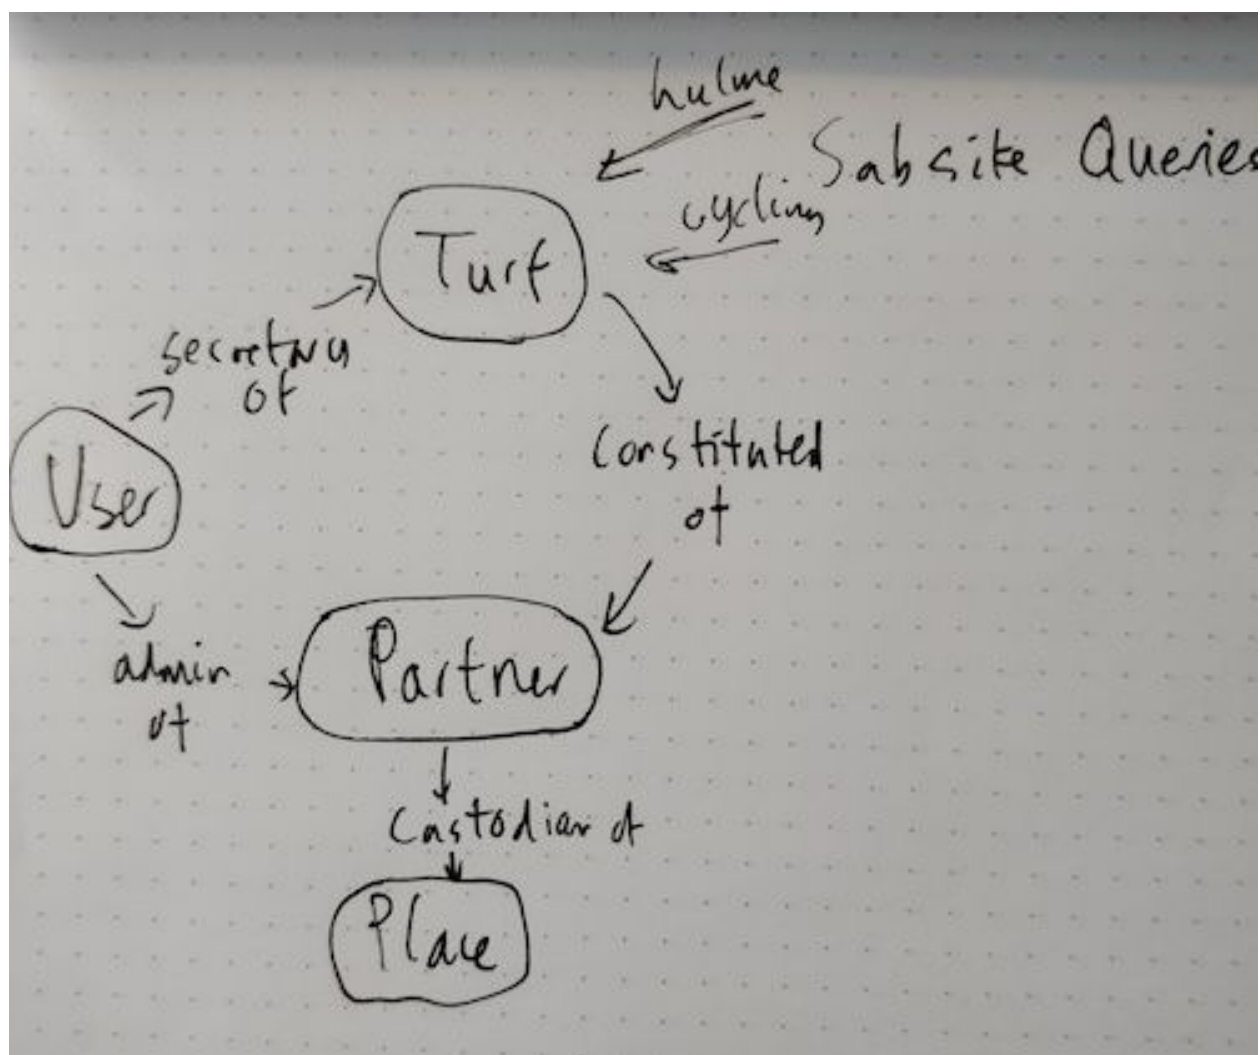 hulme
Subsite Queries
cycling
Turf
secretary
of
User
Constituted
of
admin
of
Partner
Custodian of
Place